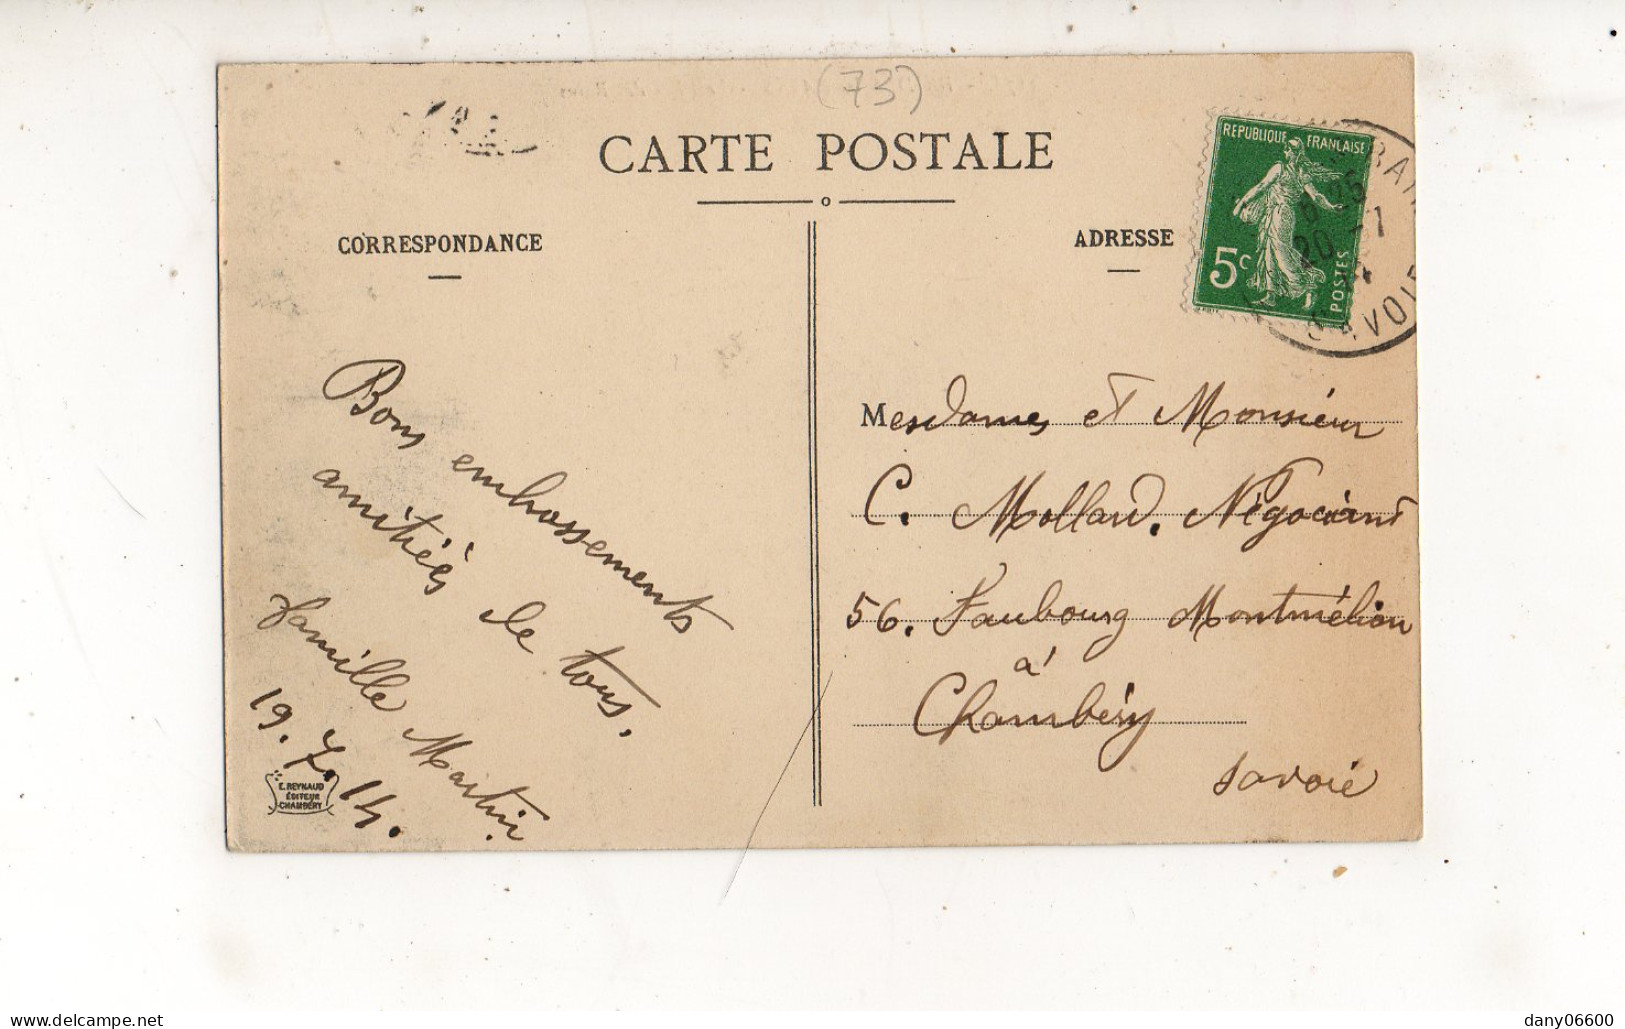 (73)
CARTE POSTALE
CORRESPONDANCE
ADRESSE
REPUBLIQUE FRANCAISE
5c
POSTES
20 -7
SAVOIE
Bons embrassements
amitiés de tous.
Famille Martin
19.7.14.
E. REYNAUD
ÉDITEUR
CHAMBÉRY
Mesdames et Monsieur
C. Mollard. Négociant
56. Faubourg Montmélian
à
Chambéry
Savoie
delcampe.net
dany06600